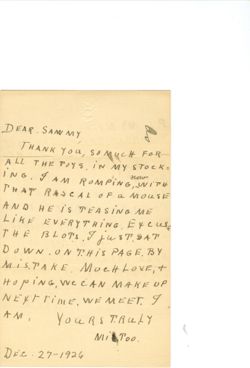 DEAR. SAMMY
THANK YOU, SO MUCH FOR
ALL THE TOYS, IN MY STOCK-
ING. I AM ROMPING, NOW WITH
THAT RASCAL OF A MOUSE
AND HE IS TEASING ME
LIKE EVERYTHING. EXCUSE
THE BLOTS, I JUST SAT
DOWN. ON THIS PAGE, BY
MISTAKE. MUCH LOVE, +
HOPING, WE CAN MAKE UP
NEXT TIME, WE MEET. I
AM. YOURS TRULY
DEC. 27-1926